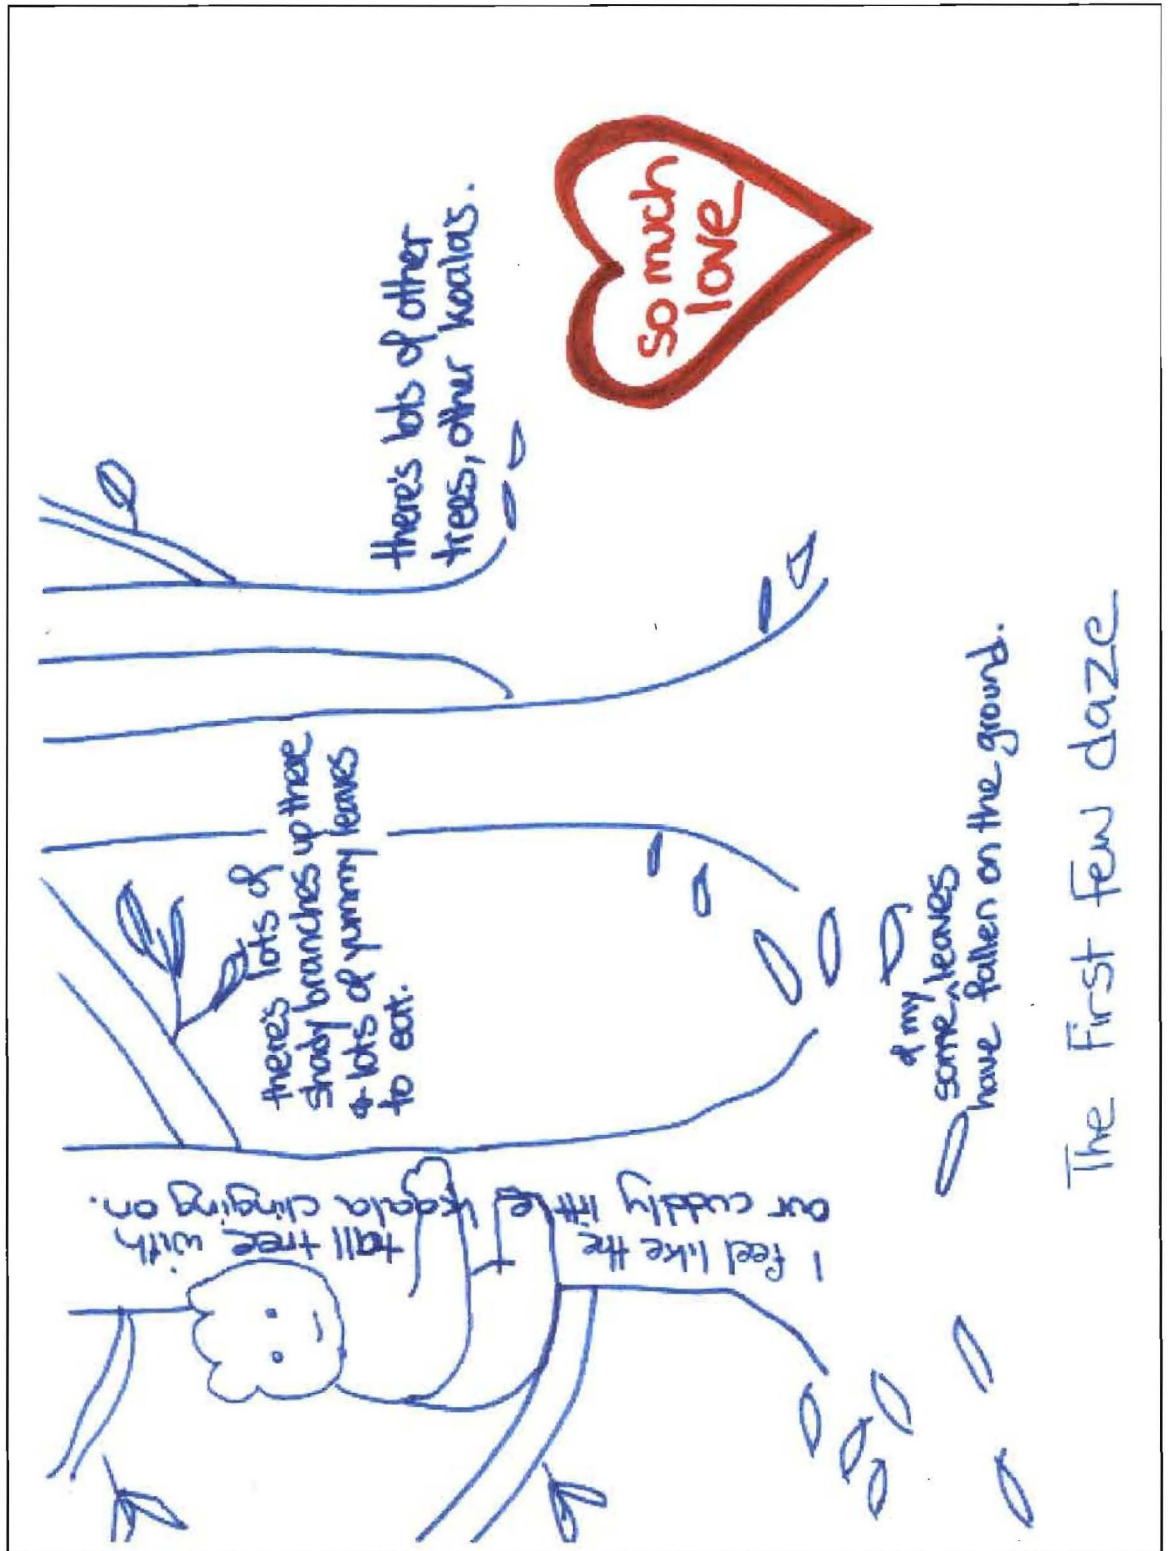 I feel like the tall tree with
our cuddly little koala clinging on.
there's lots of
shady branches up there
& lots of yummy leaves
to eat.
there's lots of other
trees, other koalas.
so much
love
of my
some leaves
have fallen on the ground.
The First Few daze